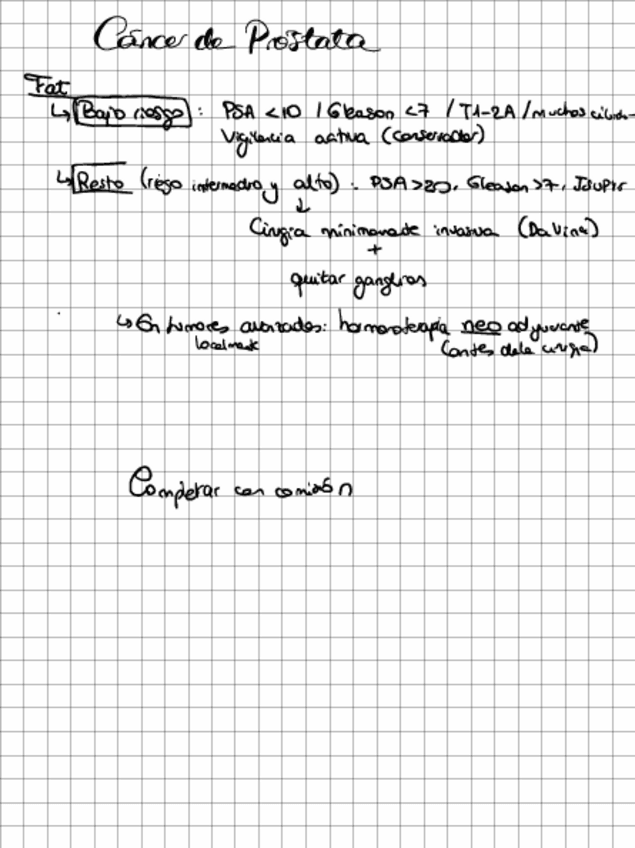 Cáncer de Próstata
Fat
↳ Bajo riesgo : PSA <10 / Gleason <7 / T1-2A / muchos
Vigilancia activa (conservador)
↳ Resto (riesgo intermedio y alto) : PSA >20, Gleason >7,
↓
Cirugía minimamente invasiva (Da Vinci)
+
quitar ganglios
↳ En tumores avanzados: hormonoterapia neo adyuvante
localmente (antes de la cirugía)
Completar con comisión